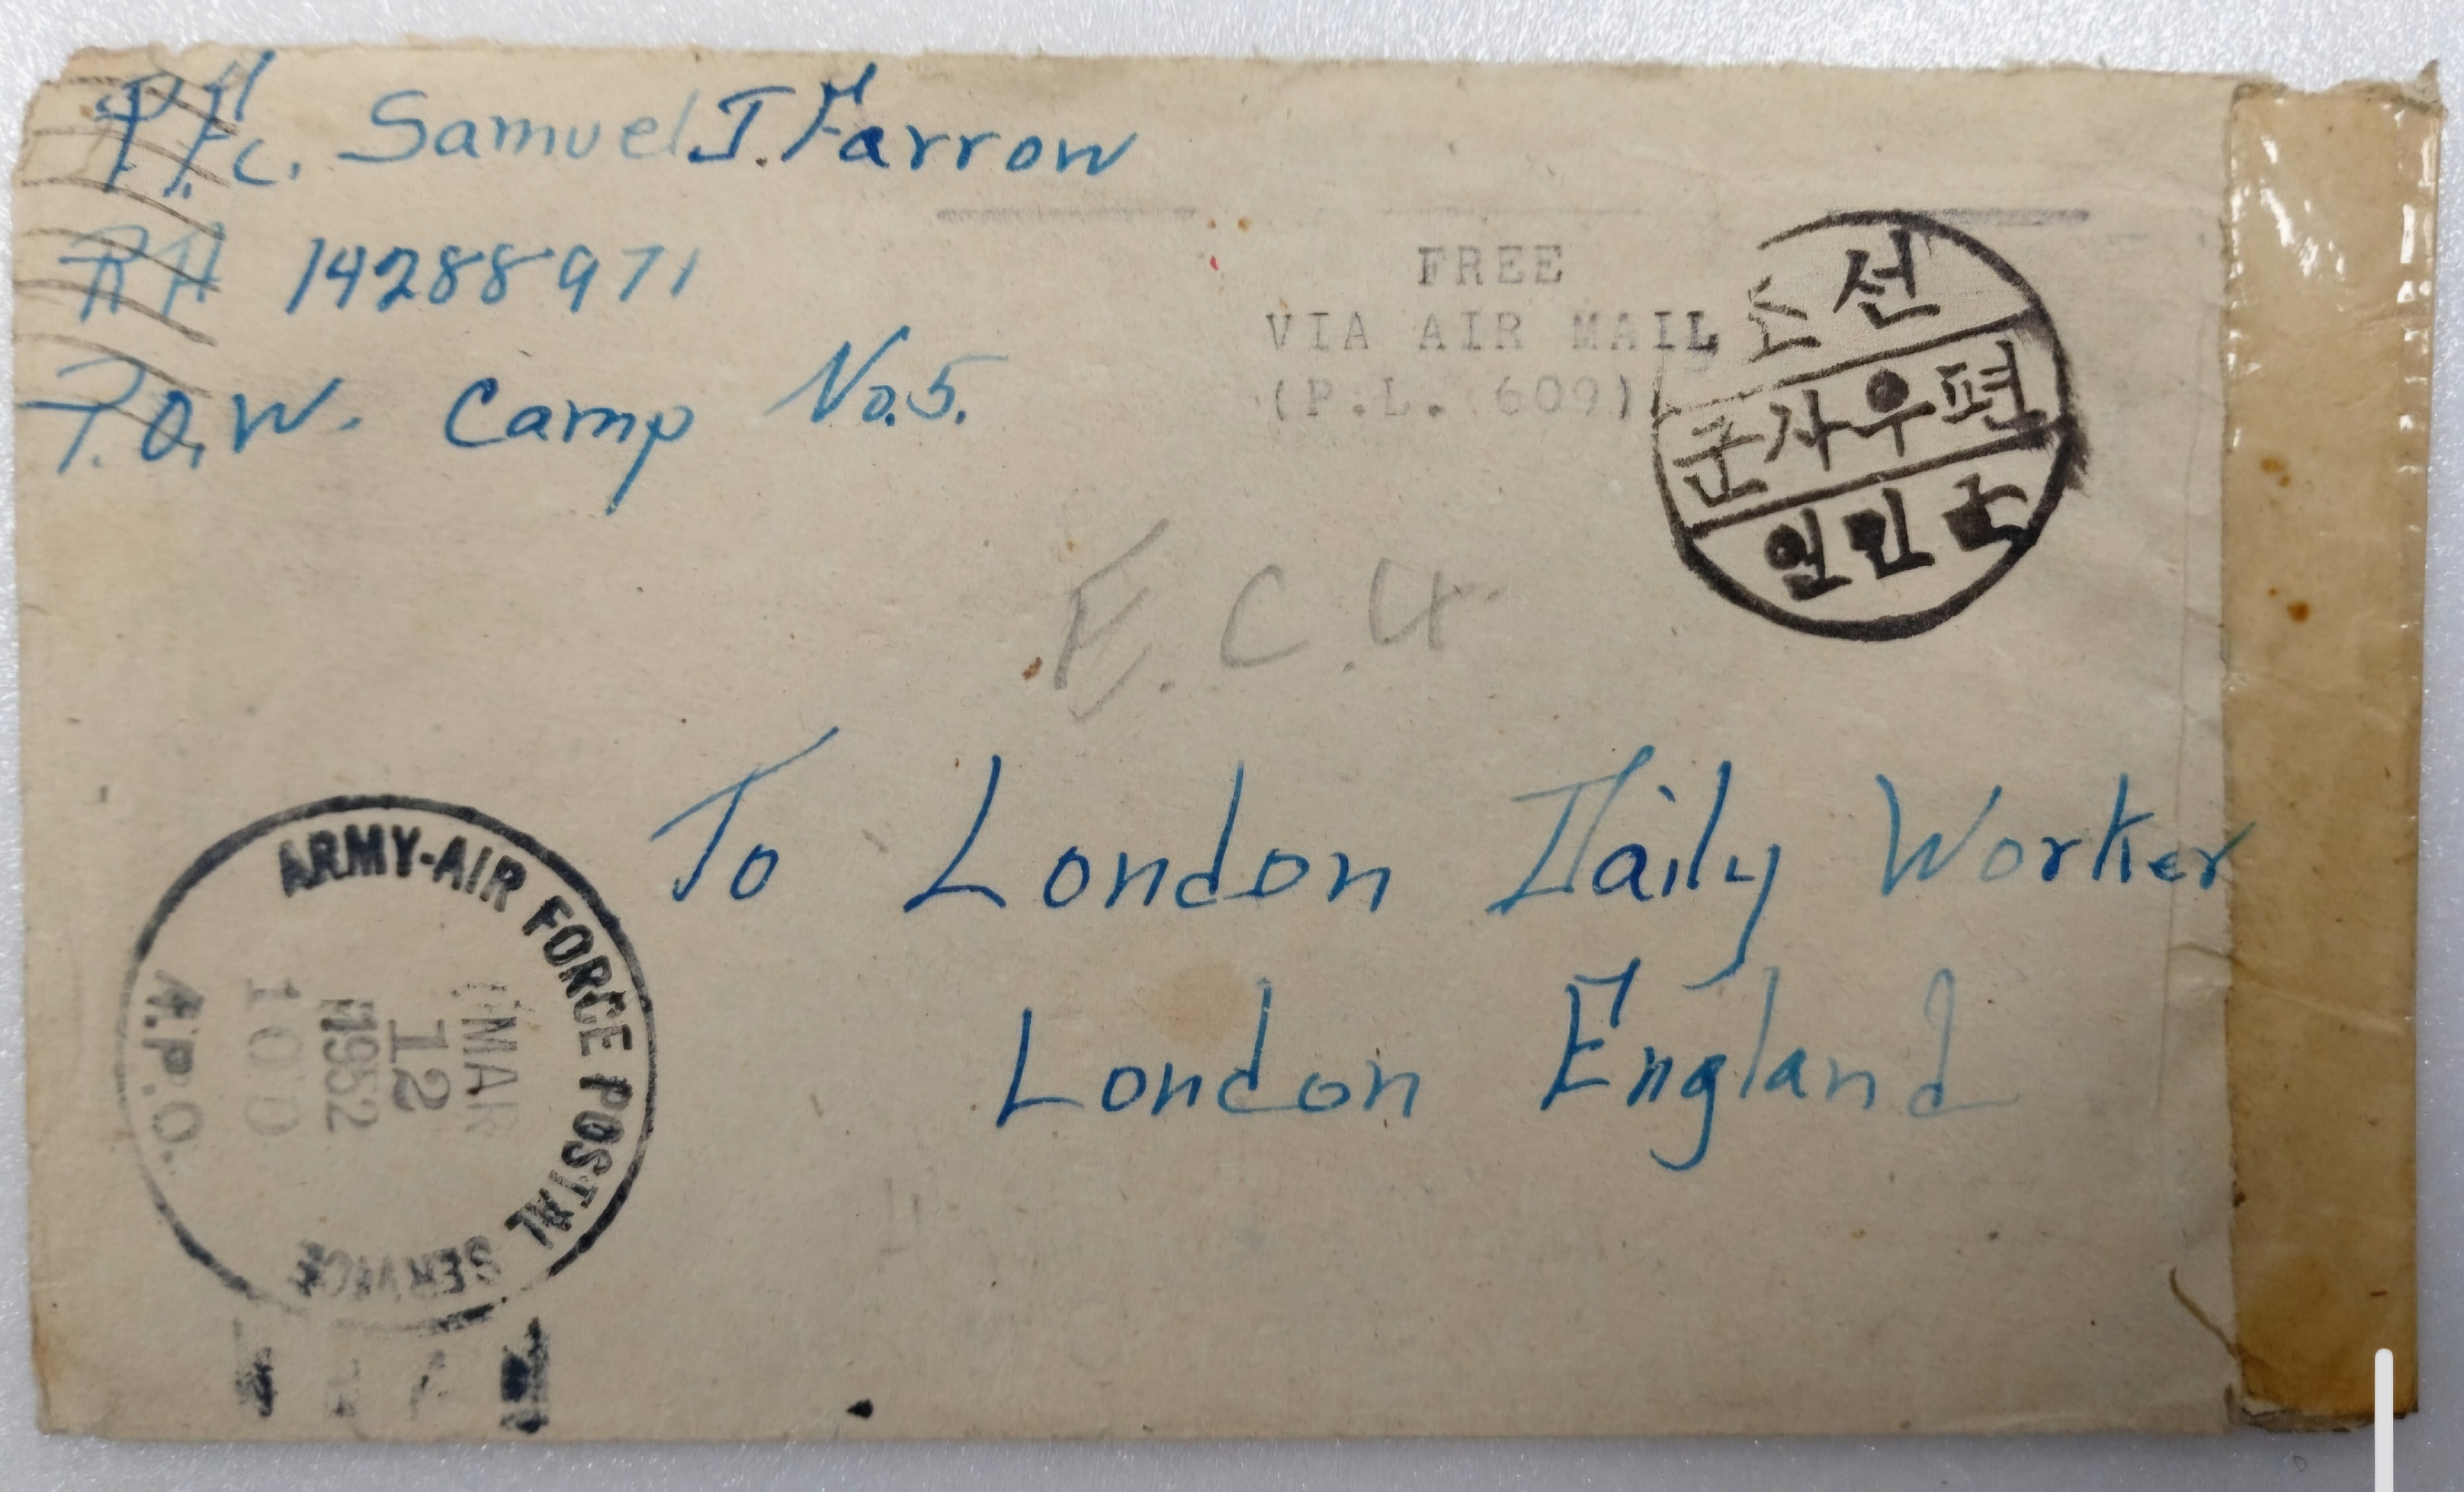 Pfc. Samuel J. Farrow
RA 14288971
P.O.W. Camp No.5.
FREE
VIA AIR MAIL
(P.L. 609)
조선
군사우편
E.C.4.
To London Daily Worker
London England
ARMY-AIR FORCE POSTAL SERVICE
MAR
12
1952
100
A.P.O.